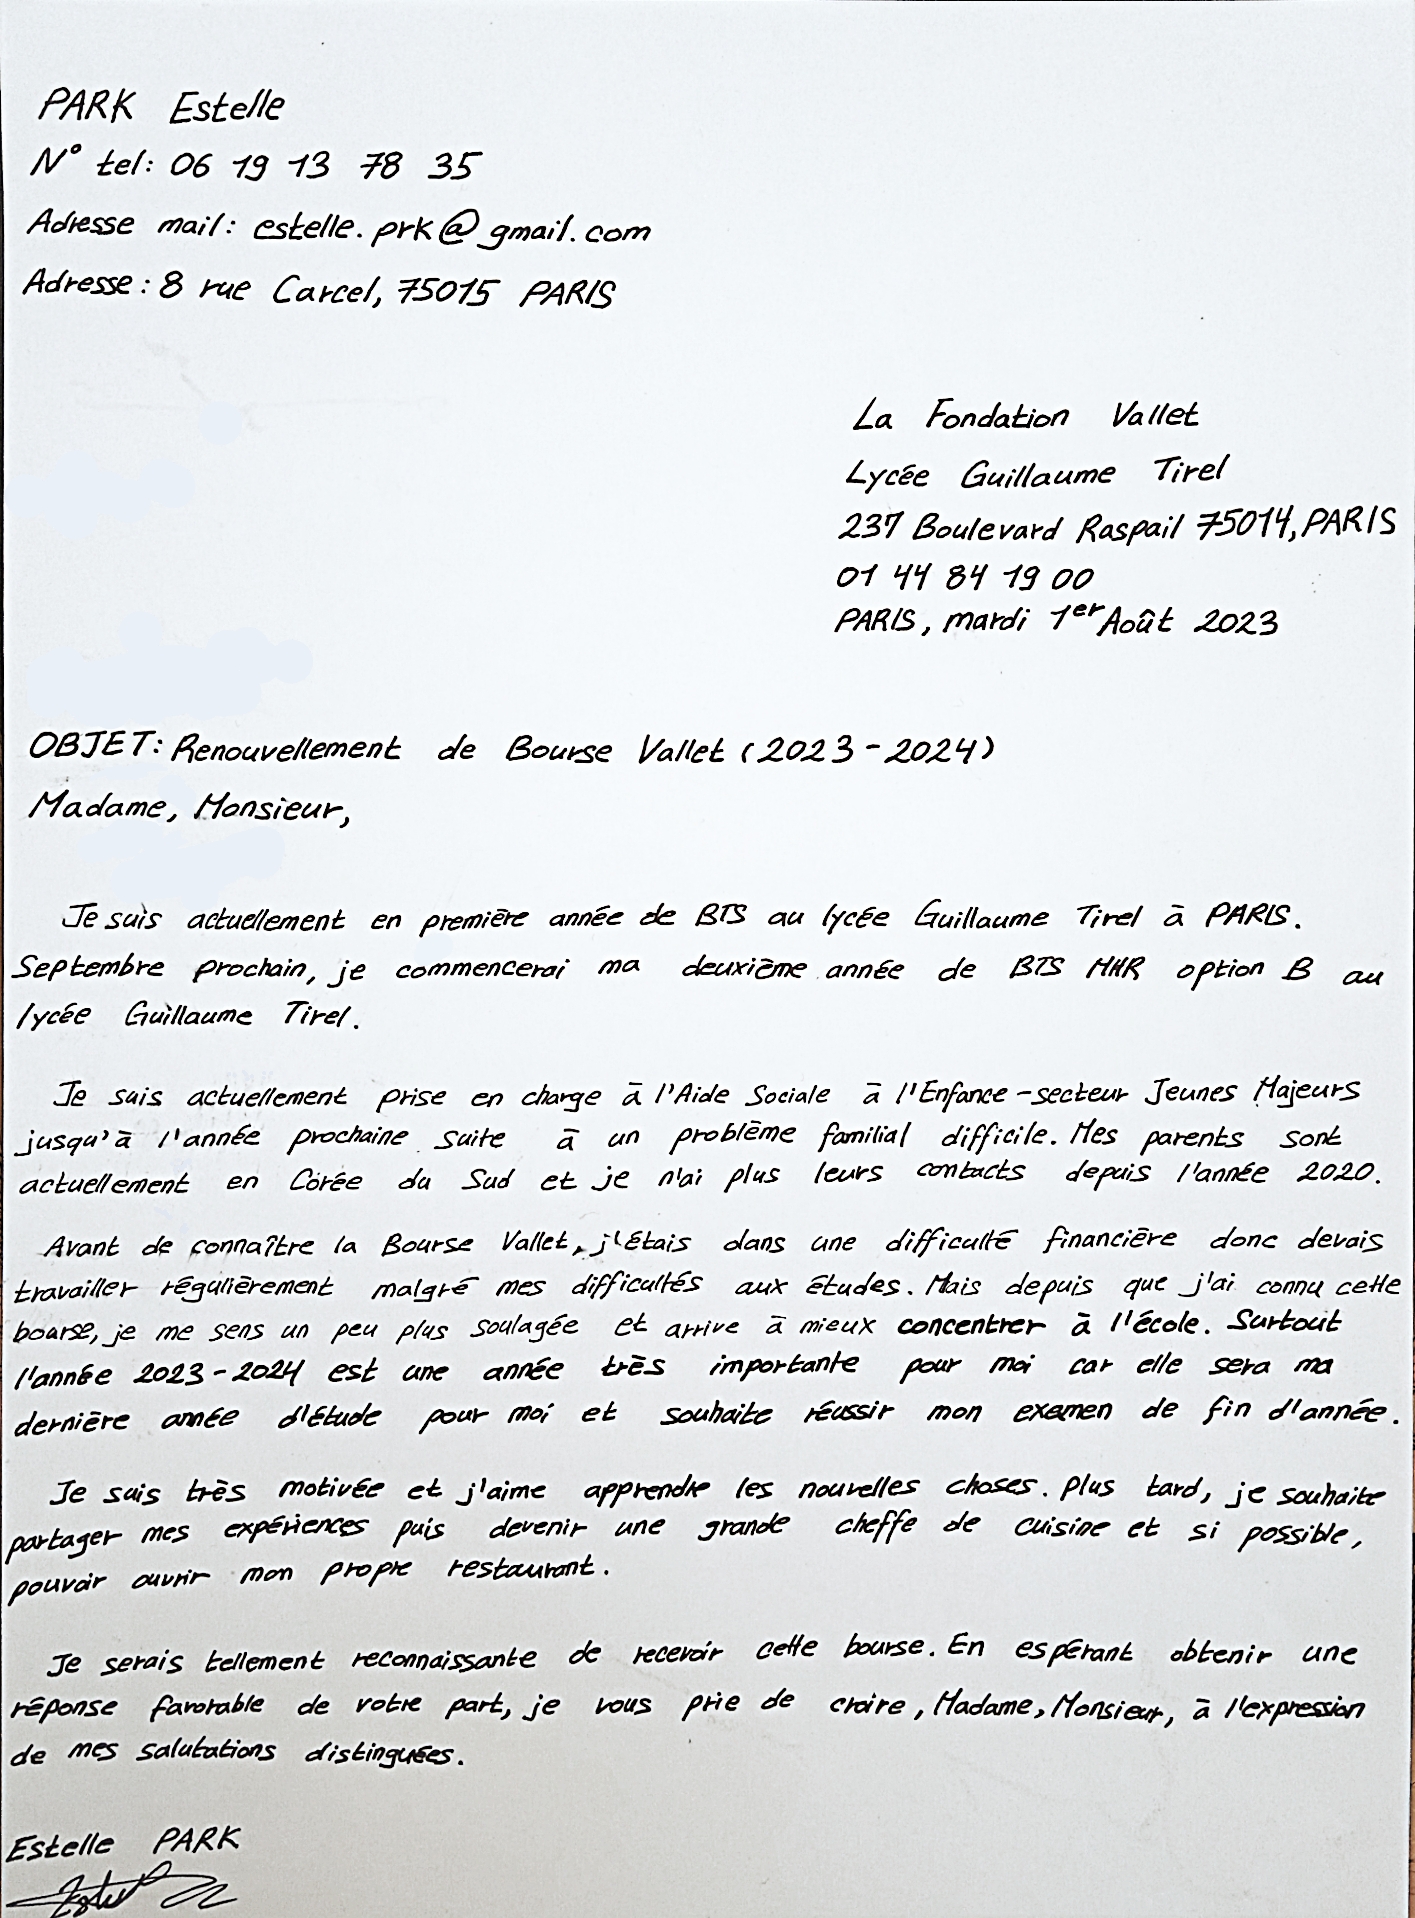 PARK Estelle
N° tel: 06 19 13 78 35
Adresse mail: estelle.prk@gmail.com
Adresse: 8 rue Carcel, 75015 PARIS
La Fondation Vallet
Lycée Guillaume Tirel
237 Boulevard Raspail 75014, PARIS
01 44 84 19 00
PARIS, mardi 1er Août 2023
OBJET: Renouvellement de Bourse Vallet (2023-2024)
Madame, Monsieur,
Je suis actuellement en première année de BTS au lycée Guillaume Tirel à PARIS.
Septembre prochain, je commencerai ma deuxième année de BTS MHR option B au
lycée Guillaume Tirel.
Je suis actuellement prise en charge à l'Aide Sociale à l'Enfance-secteur Jeunes Majeurs
jusqu'à l'année prochaine suite à un problème familial difficile. Mes parents sont
actuellement en Corée du Sud et je n'ai plus leurs contacts depuis l'année 2020.
Avant de connaître la Bourse Vallet, j'étais dans une difficulté financière donc devais
travailler régulièrement malgré mes difficultés aux études. Mais depuis que j'ai connu cette
bourse, je me sens un peu plus soulagée et arrive à mieux concentrer à l'école. Surtout
l'année 2023-2024 est une année très importante pour moi car elle sera ma
dernière année d'étude pour moi et souhaite réussir mon examen de fin d'année.
Je suis très motivée et j'aime apprendre les nouvelles choses. Plus tard, je souhaite
partager mes expériences puis devenir une grande cheffe de cuisine et si possible,
pouvoir ouvrir mon propre restaurant.
Je serais tellement reconnaissante de recevoir cette bourse. En espérant obtenir une
réponse favorable de votre part, je vous prie de croire, Madame, Monsieur, à l'expression
de mes salutations distinguées.
Estelle PARK